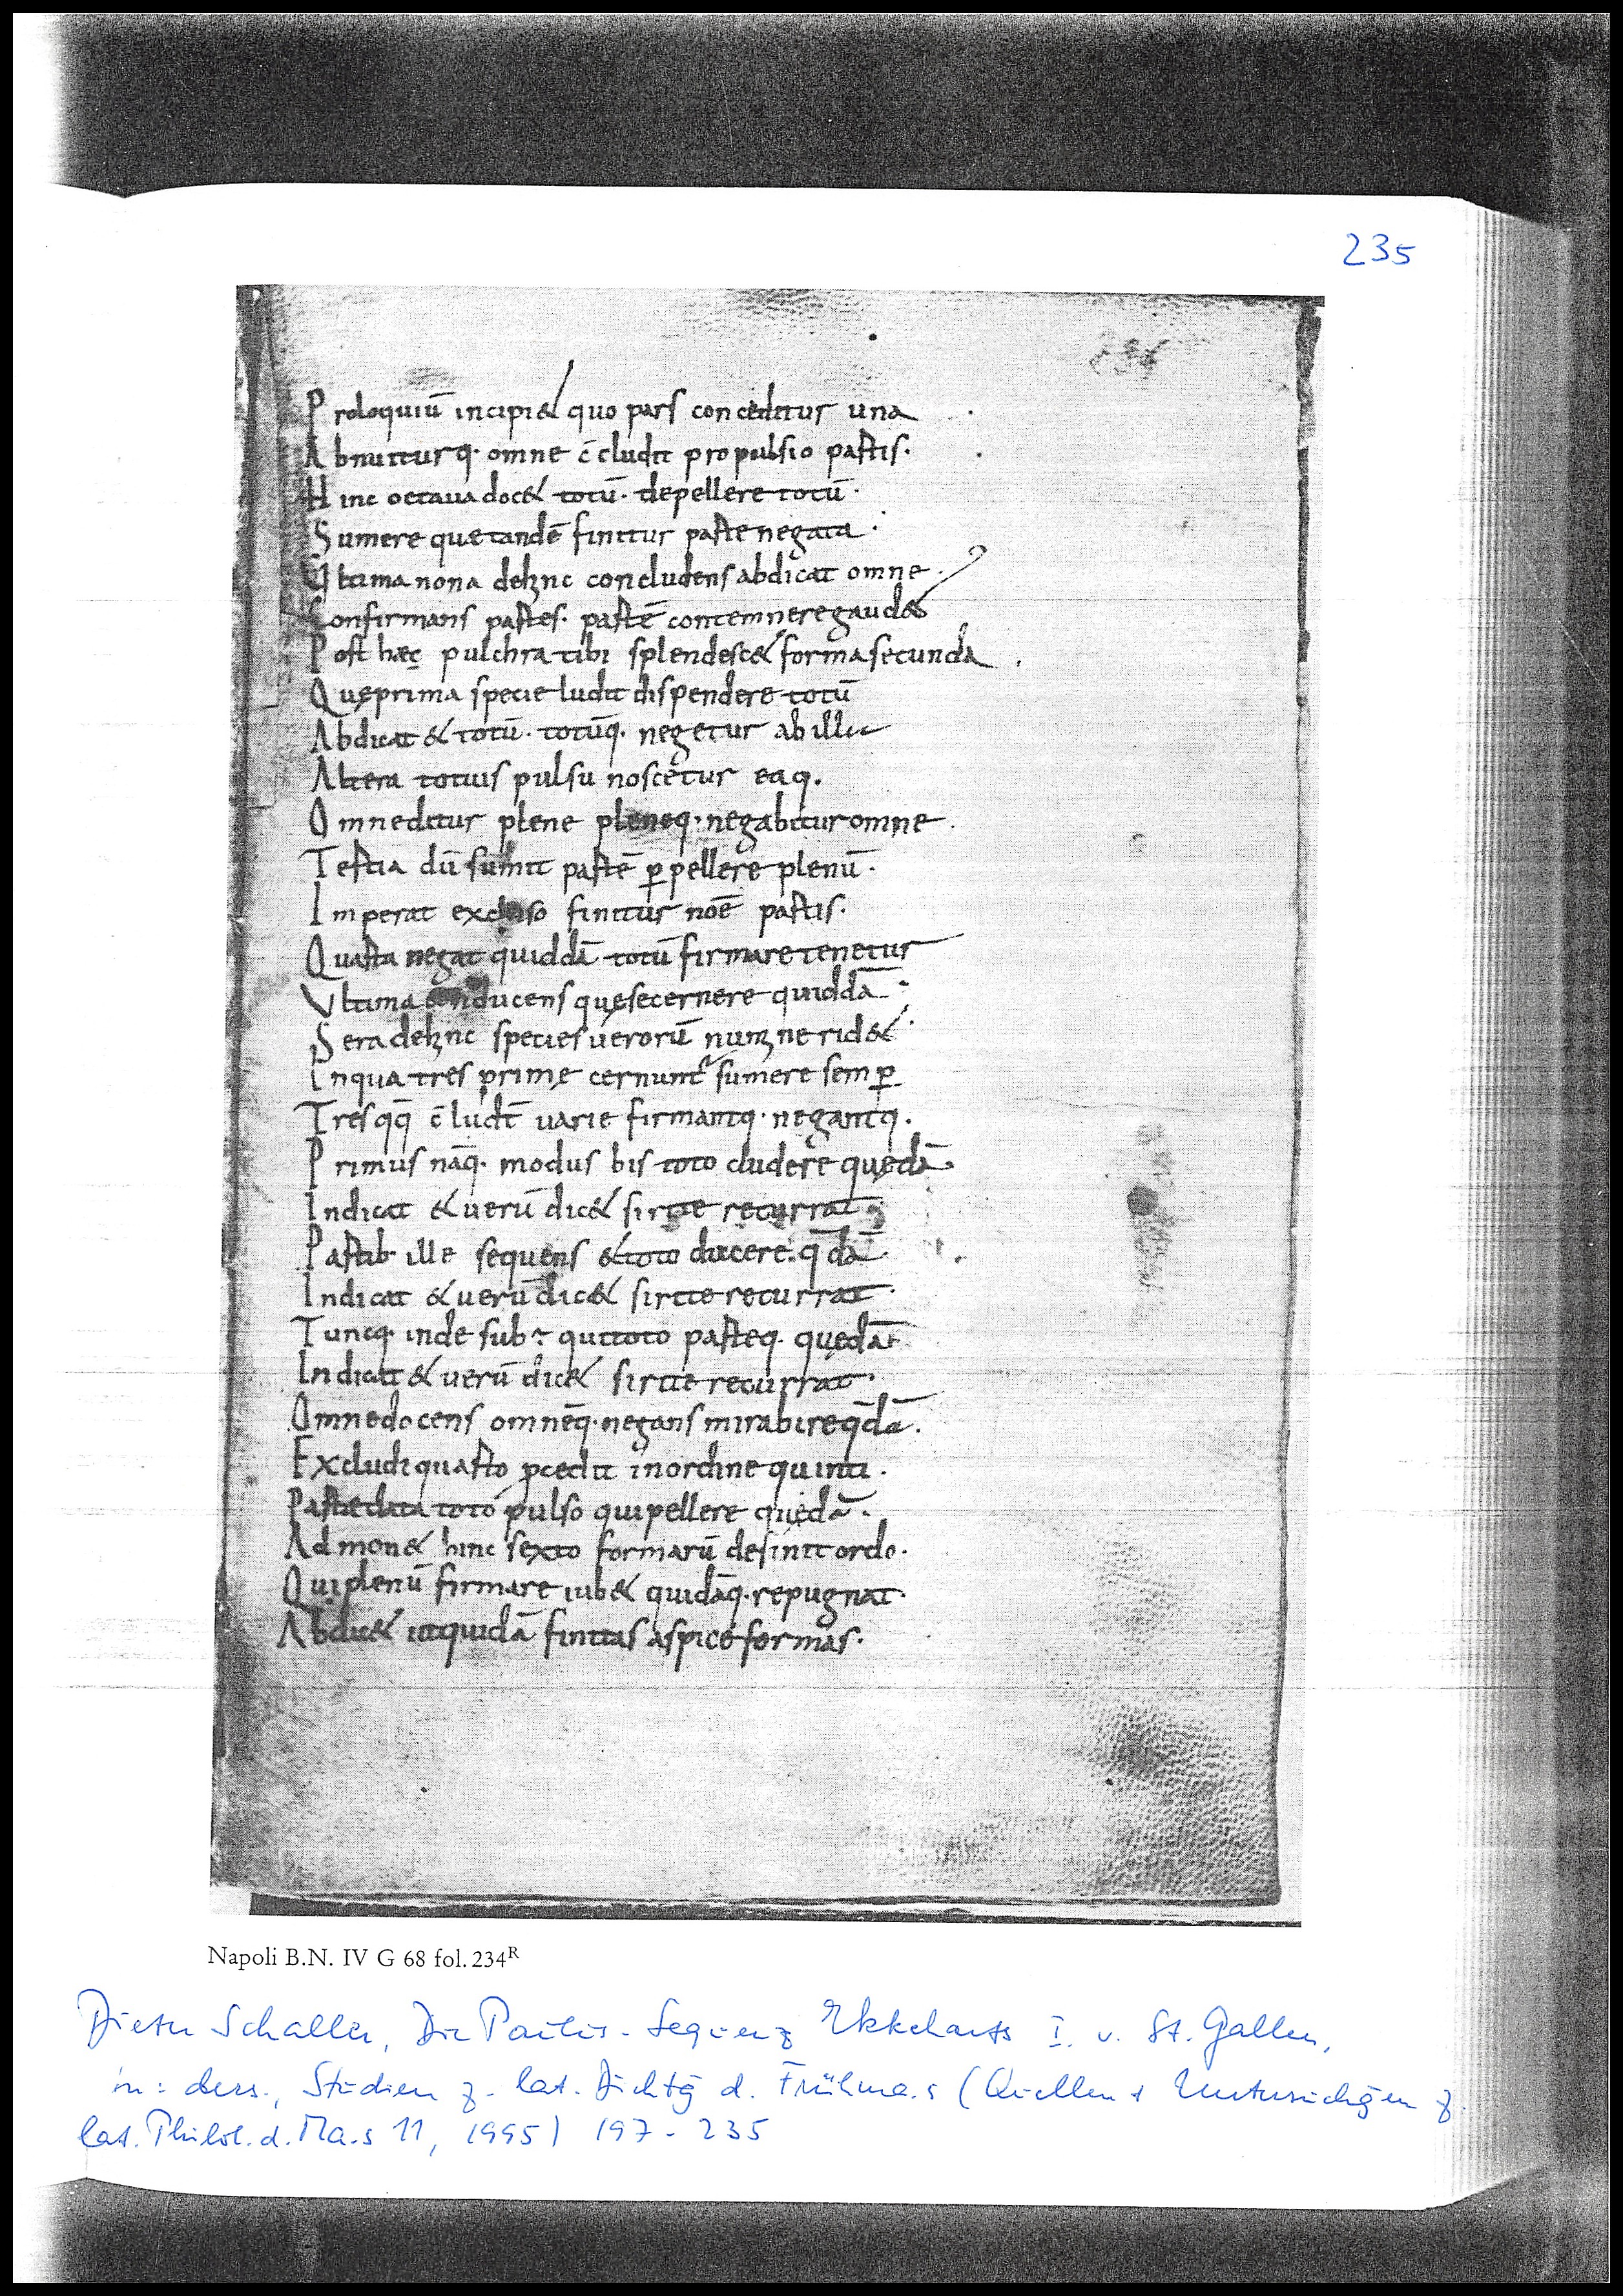 235
Proloquiū incipi& quo pars conceditur una
Abnuiturq· omne c̄cludit propulsio partis·
Hinc octaua doc& totū· depellere totū·
Sumere que tandē finitur parte negata·
Vltima nona dehinc concludens abdicat omne·
Confirmans partes· partē contemnere gaud&
Post hæc pulchra tibi splendesc& forma secunda
Quę prima specie ludit dispendere totū
Abdicat & totū· totūq· negetur ab illa
Altera totius pulsu noscetur eaq·
Omne ditur plene pleneq· negabitur omne·
Tertia dū sumit partē ꝑpellere plenū·
Imperat excluso finitur noē partis·
Quarta negat quiddā totū firmare tenetur
Vltima conducens quę secernere quiddā·
Sera dehinc species uerorū munere rid&·
In qua tres primę cernunt᷒ sumere semꝑ
Tresqq̄ c̄ludt̄ uarie firmantq· negantq·
Primus nāq· modus bis toto cludere quedā·
Indicat & uerū dic& si rite recurrat
Partib· ille sequens & toto ducere· q̄dā
Indicat & uerū dic& si rite recurrat·
Tuncq· inde qui toto parteq· quędā
Indicat & uerū dic& si rite recurrat·
Omne docens omnēq· negans mirabire q̄dā·
Excludi quarto p̄cedit in ordine quinti·
Parte data toto pulso qui pellere quedā·
Admon& hinc sexto formarū desinit ordo·
Qui plenū firmare iub& quidāq· repugnat·
Abdic& ut quidā finitas aspice formas·
Napoli B.N. IV G 68 fol. 234ᴿ
Dieter Schaller, Die Paulus-Sequenz Ekkeharts I. v. St. Gallen,
in: ders., Studien z. lat. Dichtg d. Frühma.s (Quellen + Untersuchgen z.
lat. Philol. d. Ma.s 11, 1995) 197-235